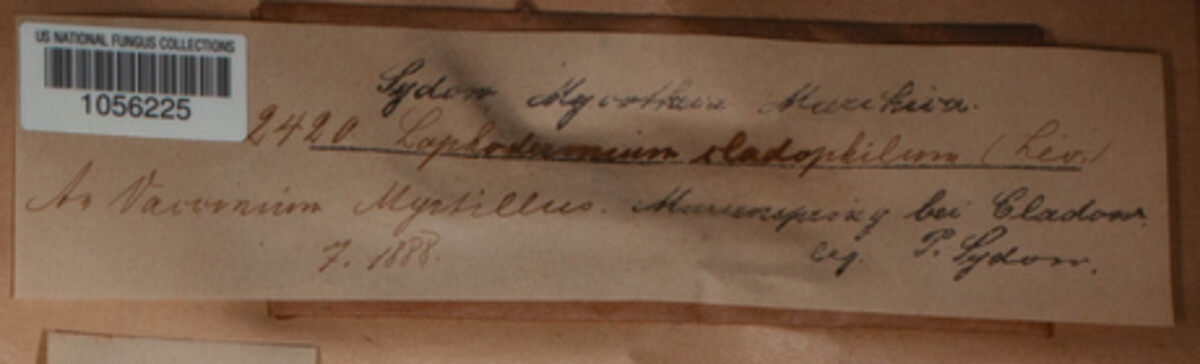 US NATIONAL FUNGUS COLLECTIONS
1056225
Sydow Mycotheca Marchica.
2420. Lophodermium cladophilum (Lév.)
An Vaccinium Myrtillus. bei Cladow.
7. 1888. leg. P. Sydow.